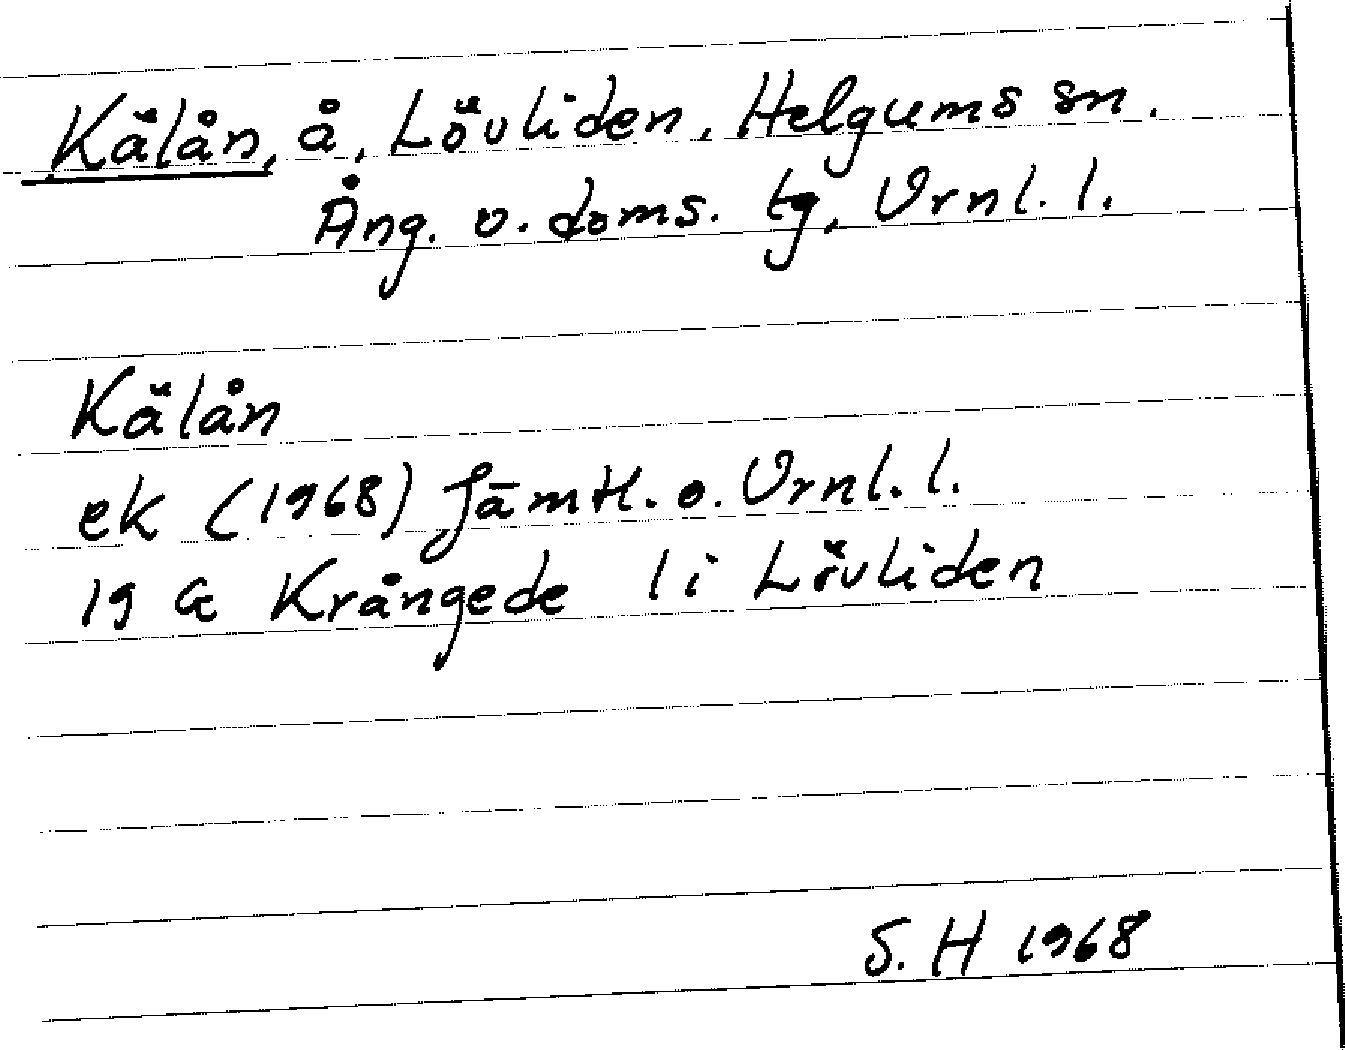 Kälån, å, Lövliden, Helgums sn.
Ång. v. doms. tg, Vrnl. l.
Kälån
ek (1968) Jämtl. o. Vrnl. l.
19 G Krångede l i Lövliden
S. H 1968